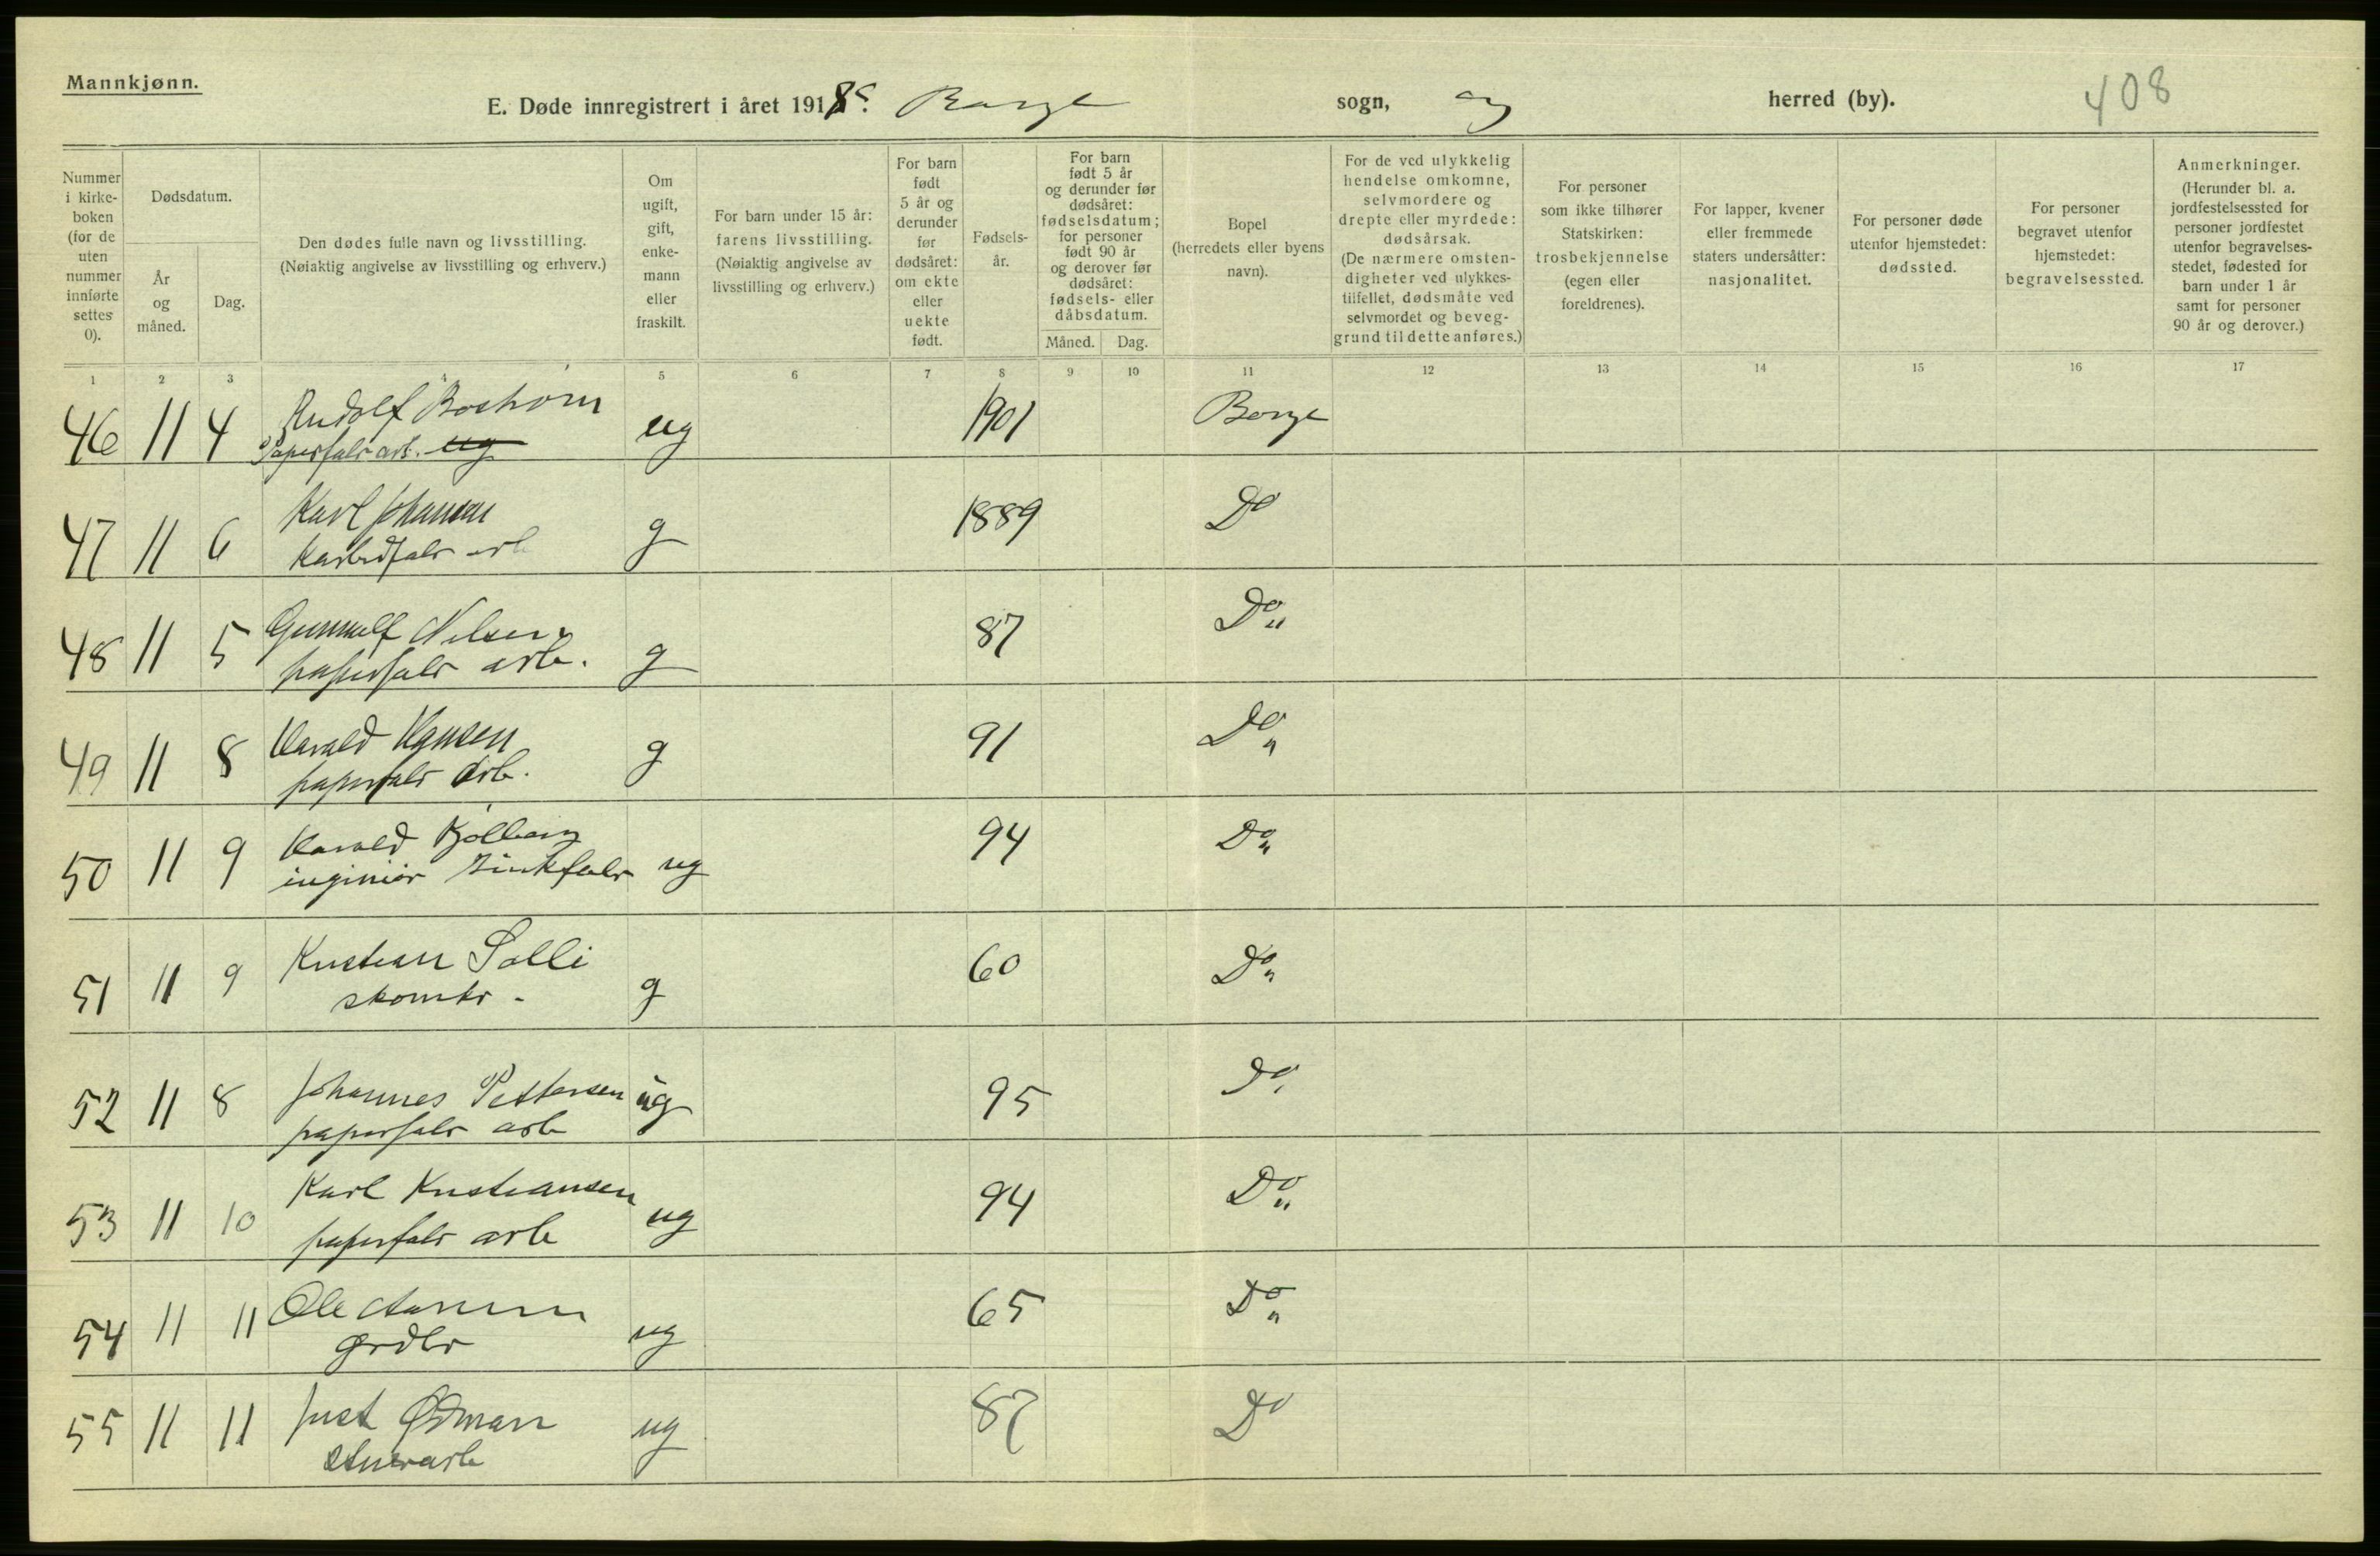 Mannkjønn.
E. Døde innregistrert i året 1918 Borge sogn, og herred (by). 408
Nummer i kirke- boken (for de uten nummer innførte settes 0).
Dødsdatum.
År og måned.
Dag.
Den dødes fulle navn og livsstilling. (Nøiaktig angivelse av livsstilling og erhverv.)
Om ugift, gift, enke- mann eller fraskilt.
For barn under 15 år: farens livsstilling. (Nøiaktig angivelse av livsstilling og erhverv.)
For barn født 5 år og derunder før dødsåret: om ekte eller uekte født.
Fødsels- år.
For barn født 5 år og derunder før dødsåret: fødselsdatum; for personer født 90 år og derover før dødsåret: fødsels- eller dåbsdatum.
Måned. Dag.
Bopel (herredets eller byens navn).
For de ved ulykkelig hendelse omkomne, selvmordere og drepte eller myrdede: dødsårsak. (De nærmere omsten- digheter ved ulykkes- tilfellet, dødsmåte ved selvmordet og beveg- grund til dette anføres.)
For personer som ikke tilhører Statskirken: trosbekjennelse (egen eller foreldrenes).
For lapper, kvener eller fremmede staters undersåtter: nasjonalitet.
For personer døde utenfor hjemstedet: dødssted.
For personer begravet utenfor hjemstedet: begravelsessted.
Anmerkninger. (Herunder bl. a. jordfestelsessted for personer jordfestet utenfor begravelses- stedet, fødested for barn under 1 år samt for personer 90 år og derover.)
1 2 3 4 5 6 7 8 9 10 11 12 13 14 15 16 17
46 11 4 Rudolf ug 1901 Borge
Papirfabr arb. ug
47 11 6 Karl Johansen g 1889 Do
Karbidfabr arb
48 11 5 Gunnulf Nilsen g 87 Do "
papirfabr arb.
49 11 8 Harald Hansen g 91 Do "
papirfabr arb.
50 11 9 Harald Kjølberg ug 94 Do "
inginiør Zinkfabr
51 11 9 Kristian Solli g 60 Do "
skomkr -
52 11 8 Johannes Pettersen ug 95 Do
papirfabr arb
53 11 10 Karl Kristiansen ug 94 Do "
papirfabr arb
54 11 11 Ole ug 65 Do "
grdbr
55 11 11 Just Ødman ug 87 Do